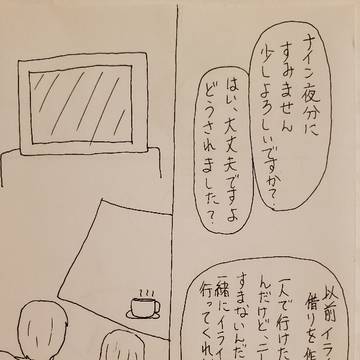 ナイン夜分に
すみません
少しよろしいですか?
はい、大丈夫ですよ
どうされました?
以前イラ
借りを作
一人で行けた
んだけど、二
すまないんだ
一緒にイライ
行ってくれ